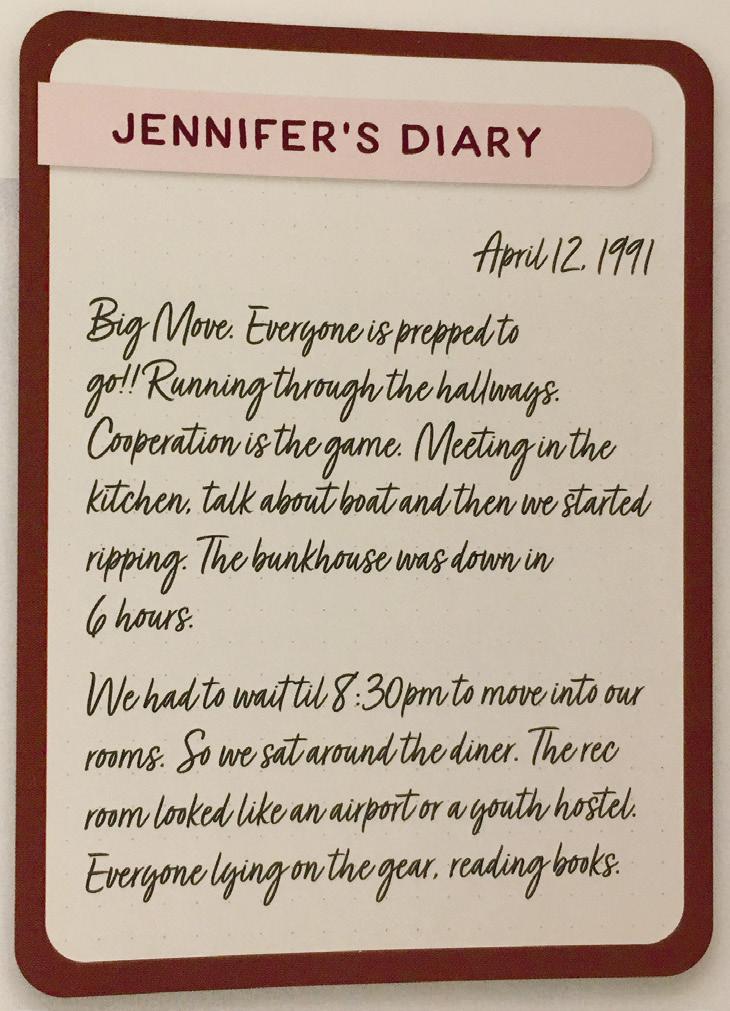 JENNIFER'S DIARY
April 12, 1991
Big Move. Everyone is prepped to
go!! Running through the hallways.
Cooperation is the game. Meeting in the
kitchen, talk about boat and then we started
ripping. The bunkhouse was down in
6 hours.
We had to wait til 8:30pm to move into our
rooms. So we sat around the diner. The rec
room looked like an airport or a youth hostel.
Everyone lying on the gear, reading books.